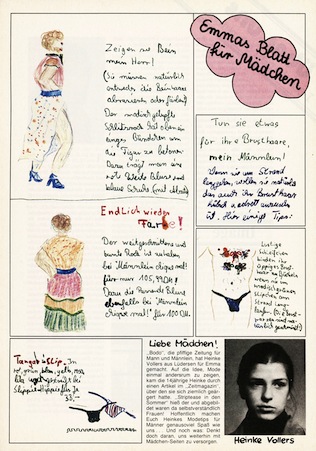 Emmas Blatt
für Mädchen
Zeigen sie Bein
mein Herr!
(Sie müssen natürlich
entweder die Beinhaare
abrasieren oder färben)
Der
Schlitzrock hat oben ein
enges Bündchen um
die Figur zu betonen.
Dazu trägt man eine
rote Bluse und
blaue Schuhe (mit Absatz)
Tun sie etwas
für ihre Brusthaare,
mein Männlein!
Wenn sie am Strand
wollen sie natürlich
das auch ihr Brusthaar
ist. Hier einige Tips:
Endlich wieder
Farbe!
Der weitgeschnittene und
bunte Rock ist zu haben
bei "Männlein chique mal!"
für nur 105,99 DM!
Dazu die passende Bluse
ebenfalls bei "Männlein
chique mal!" für 100 DM.
Lustige
Schleifchen
binden ihr
üppiges Brust-
haar
wenn sie im
Slipchen am
Strand lang-
laufen.
Tanga-Slip. In
rot, grün, blau, gelb, rosa,
lila
für
33,-
Liebe Mädchen!
„Blödio", die pfiffige Zeitung für
Mann und Männlein, hat Heinke
Vollers aus Lüdersen für Emma
gemacht. Auf die Idee, Mode
einmal andersrum zu zeigen,
kam die 14jährige Heinke durch
einen Artikel im „Zeitmagazin",
über den sie sich ziemlich geär-
gert hatte. „Striptease in den
Sommer" hieß der und abgebil-
det waren da selbstverständlich
Frauen! Hoffentlich machen
Euch Heinkes Modetips für
Männer genausoviel Spaß wie
uns ... Und noch was: Denkt
doch daran, uns weiterhin mit
Mädchen-Seiten zu versorgen.
Heinke Vollers